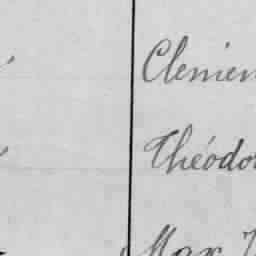 Clemen
Théodo
Max